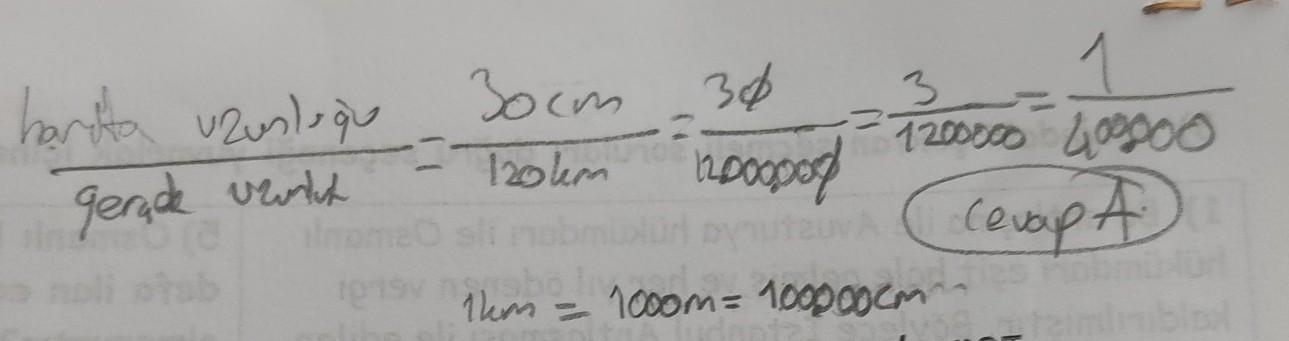 harita uzunluğu / gerçek uzunluk = 30cm / 120km = 30 / 12000000 = 3 / 1200000 = 1 / 400000
Cevap A
1km = 1000m = 100000cm